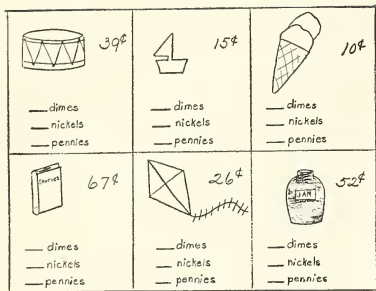 39¢
__ dimes
__ nickels
__ pennies
15¢
__ dimes
__ nickels
__ pennies
10¢
__ dimes
__ nickels
__ pennies
67¢
__ dimes
__ nickels
__ pennies
26¢
__ dimes
__ nickels
__ pennies
JAM
52¢
__ dimes
__ nickels
__ pennies